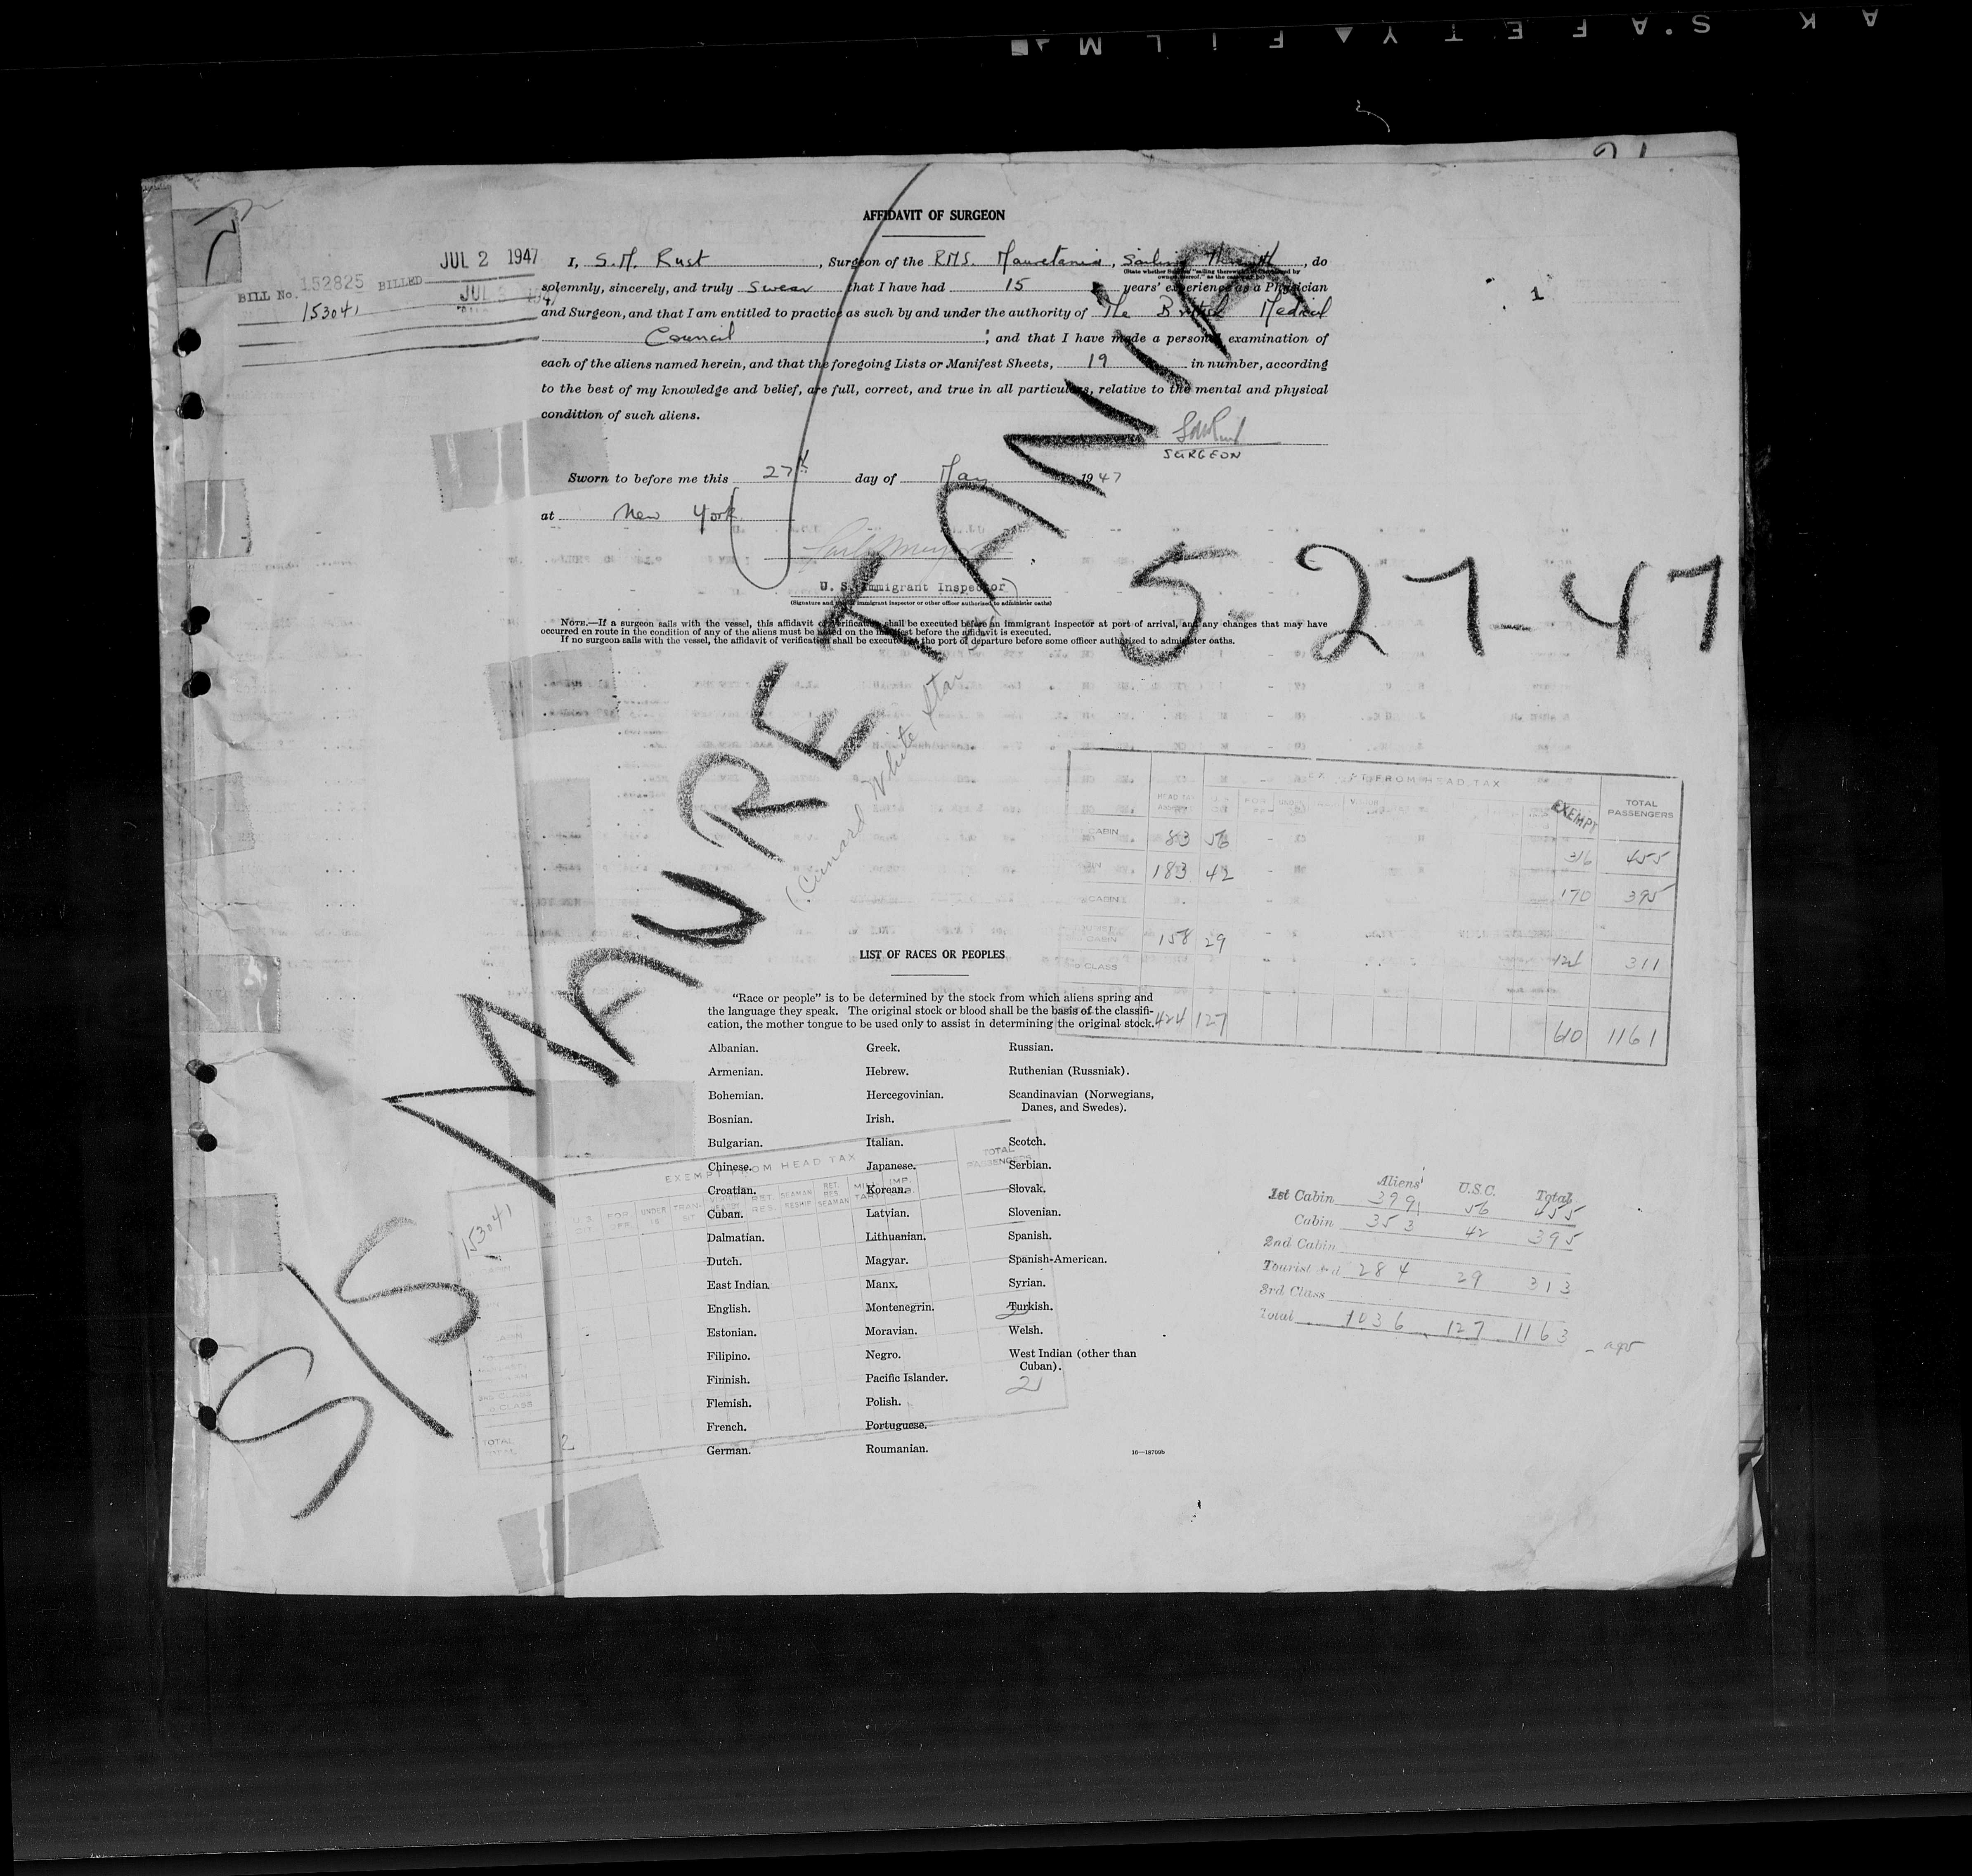 AK SAFETY FILM
AFFIDAVIT OF SURGEON
JUL 2 1947
BILL No. 152825 BILLED
JUL
153041
I, S.M. Rust, Surgeon of the RMS. Mauretania, Sailing Therewith, do
(State whether Surgeon "sailing therewith" or "employed by
owners thereof," as the case may be)
solemnly, sincerely, and truly swear that I have had 15 years' experience as a Physician
and Surgeon, and that I am entitled to practice as such by and under the authority of The British Medical
Council; and that I have made a personal examination of
each of the aliens named herein, and that the foregoing Lists or Manifest Sheets, 19 in number, according
to the best of my knowledge and belief, are full, correct, and true in all particulars, relative to the mental and physical
condition of such aliens.
SURGEON
Sworn to before me this 27th day of May, 1947
at New York
U. S. Immigrant Inspector
(Signature and title of immigrant inspector or other officer authorized to administer oaths)
NOTE.—If a surgeon sails with the vessel, this affidavit of verification shall be executed before an immigrant inspector at port of arrival, and any changes that may have
occurred en route in the condition of any of the aliens must be noted on the manifest before the affidavit is executed.
If no surgeon sails with the vessel, the affidavit of verification shall be executed at the port of departure before some officer authorized to administer oaths.
1
S/S MAURETANIA
5-27-47
(Cunard White Star)
EXEMPT FROM HEAD TAX
EXEMPT
TOTAL PASSENGERS
CABIN 83 56 316 455
183 42 170 395
CABIN
CABIN 158 29 124 311
CLASS
424 127 610 1161
LIST OF RACES OR PEOPLES
"Race or people" is to be determined by the stock from which aliens spring and
the language they speak. The original stock or blood shall be the basis of the classifi-
cation, the mother tongue to be used only to assist in determining the original stock.
Albanian. Greek. Russian.
Armenian. Hebrew. Ruthenian (Russniak).
Bohemian. Hercegovinian. Scandinavian (Norwegians,
Danes, and Swedes).
Bosnian. Irish.
Bulgarian. Italian. Scotch.
Chinese. Japanese. Serbian.
Croatian. Korean. Slovak.
Cuban. Latvian. Slovenian.
Dalmatian. Lithuanian. Spanish.
Dutch. Magyar. Spanish-American.
East Indian. Manx. Syrian.
English. Montenegrin. Turkish.
Estonian. Moravian. Welsh.
Filipino. Negro. West Indian (other than
Cuban).
Finnish. Pacific Islander.
Flemish. Polish.
French. Portuguese.
German. Roumanian.
16—18709b
EXEMPT FROM HEAD TAX
TOTAL PASSENGERS
153041
UNDER 16
RET. RES.
SEAMAN RESHIP
RET. RES. SEAMAN
TOTAL
2
2
Aliens U.S.C. Total
1st Cabin 399 56 455
Cabin 353 42 395
2nd Cabin
Tourist 284 29 313
3rd Class
Total 1036 127 1163